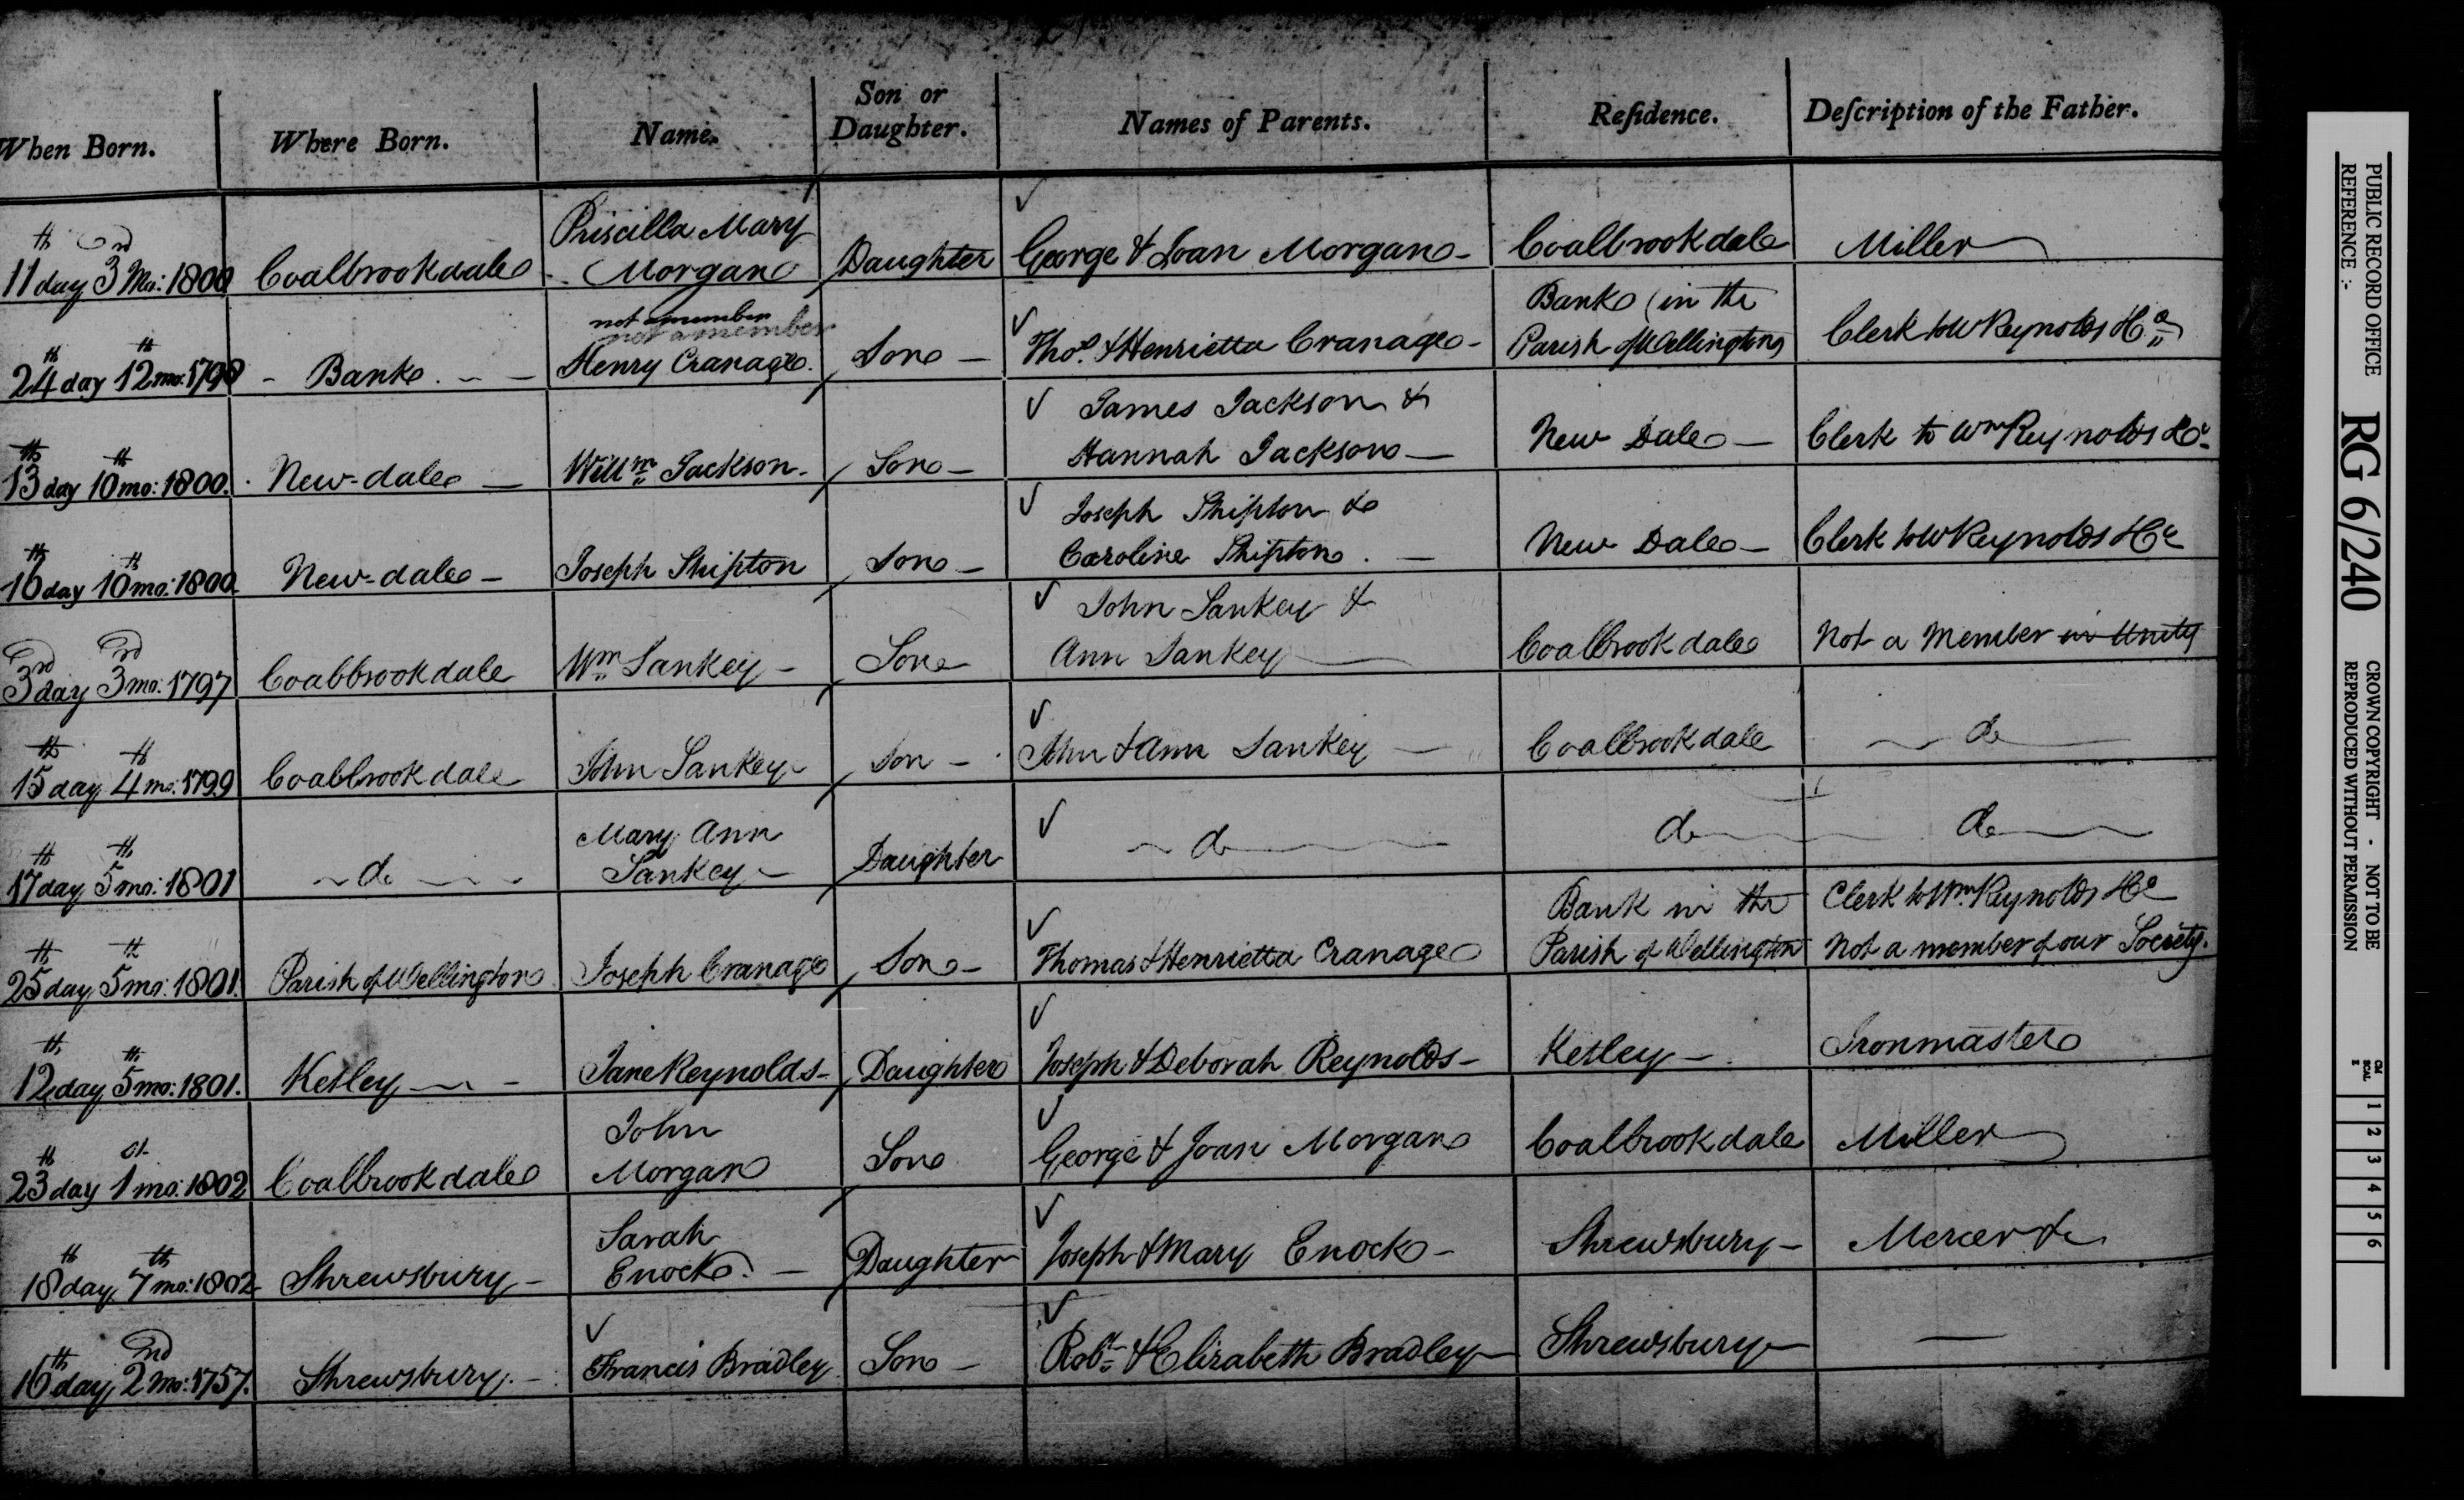 When Born. Where Born. Name. Son or Daughter. Names of Parents. Residence. Description of the Father.
11th day 3rd Mo: 1800 Coalbrookdale Priscilla Mary Morgan Daughter George & Joan Morgan Coalbrookdale Miller
24th day 12th mo: 1798 Bank not a member not a member Henry Cranage. Son Thos. & Henrietta Cranage Bank (in the Parish of Wellington) Clerk to W Reynolds &Co
13th day 10th mo: 1800. New-dale Willm Jackson Son James Jackson & Hannah Jackson New Dale Clerk to Wm Reynolds &Co
16th day 10th mo: 1800 New-dale Joseph Shipton Son Joseph Shipton & Caroline Shipton. New Dale Clerk to W Reynolds &Co
3rd day 3rd mo: 1797 Coalbrookdale Wm Sankey Son John Sankey & Ann Sankey Coalbrookdale Not a Member in Unity
15th day 4th mo: 1799 Coalbrookdale John Sankey Son John & Ann Sankey Coalbrookdale do
17th day 5th mo: 1801 do Mary Ann Sankey Daughter do do do
25th day 5th mo: 1801. Parish of Wellington Joseph Cranage Son Thomas & Henrietta Cranage Bank in the Parish of Wellington Clerk to Wm Reynolds &Co Not a member of our Society.
12th day 5th mo: 1801. Ketley Jane Reynolds Daughter Joseph & Deborah Reynolds Ketley Ironmaster
23th day 1st mo: 1802 Coalbrookdale John Morgan Son George & Joan Morgan Coalbrookdale Miller
18th day 7th mo: 1802 Shrewsbury Sarah Enock. Daughter Joseph & Mary Enock Shrewsbury Mercer &c
16th day 2nd Mo: 1757. Shrewsbury. Francis Bradley Son Robt & Elizabeth Bradley Shrewsbury
PUBLIC RECORD OFFICE
REFERENCE :-
RG 6/240
CROWN COPYRIGHT - NOT TO BE
REPRODUCED WITHOUT PERMISSION
1 2 3 4 5 6